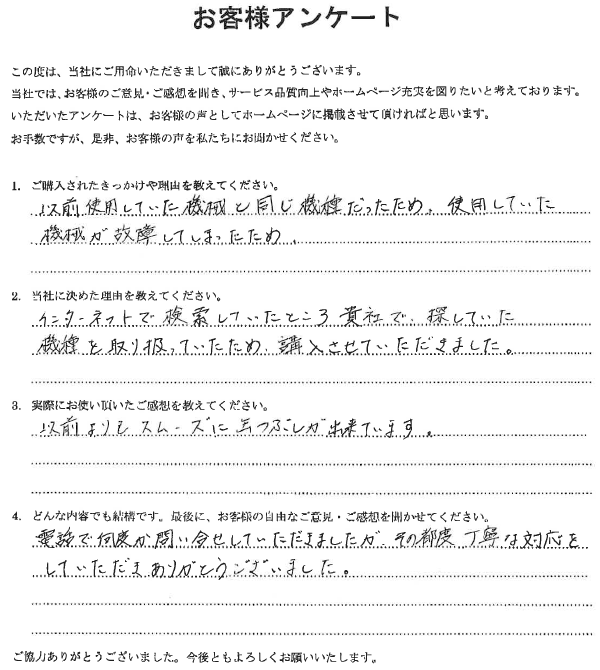 お客様アンケート
この度は、当社にご用命いただきまして誠にありがとうございます。
当社では、お客様のご意見・ご感想を聞き、サービス品質向上やホームページ充実を図りたいと考えております。
いただいたアンケートは、お客様の声としてホームページに掲載させて頂ければと思います。
お手数ですが、是非、お客様の声を私たちにお聞かせください。
1. ご購入されたきっかけや理由を教えてください。
以前使用していた機械と同じ機種だったため、使用していた
機械が故障してしまったため、
2. 当社に決めた理由を教えてください。
インターネットで検索していたところ貴社で、探していた
機種を取り扱っていたため、購入させていただきました。
3. 実際にお使い頂いたご感想を教えてください。
以前よりもスムーズに耳つぶしが出来ています。
4. どんな内容でも結構です。最後に、お客様の自由なご意見・ご感想を聞かせてください。
電話で何度か問い合せしていただきましたが、その都度丁寧な対応を
していただきありがとうございました。
ご協力ありがとうございました。今後ともよろしくお願いいたします。